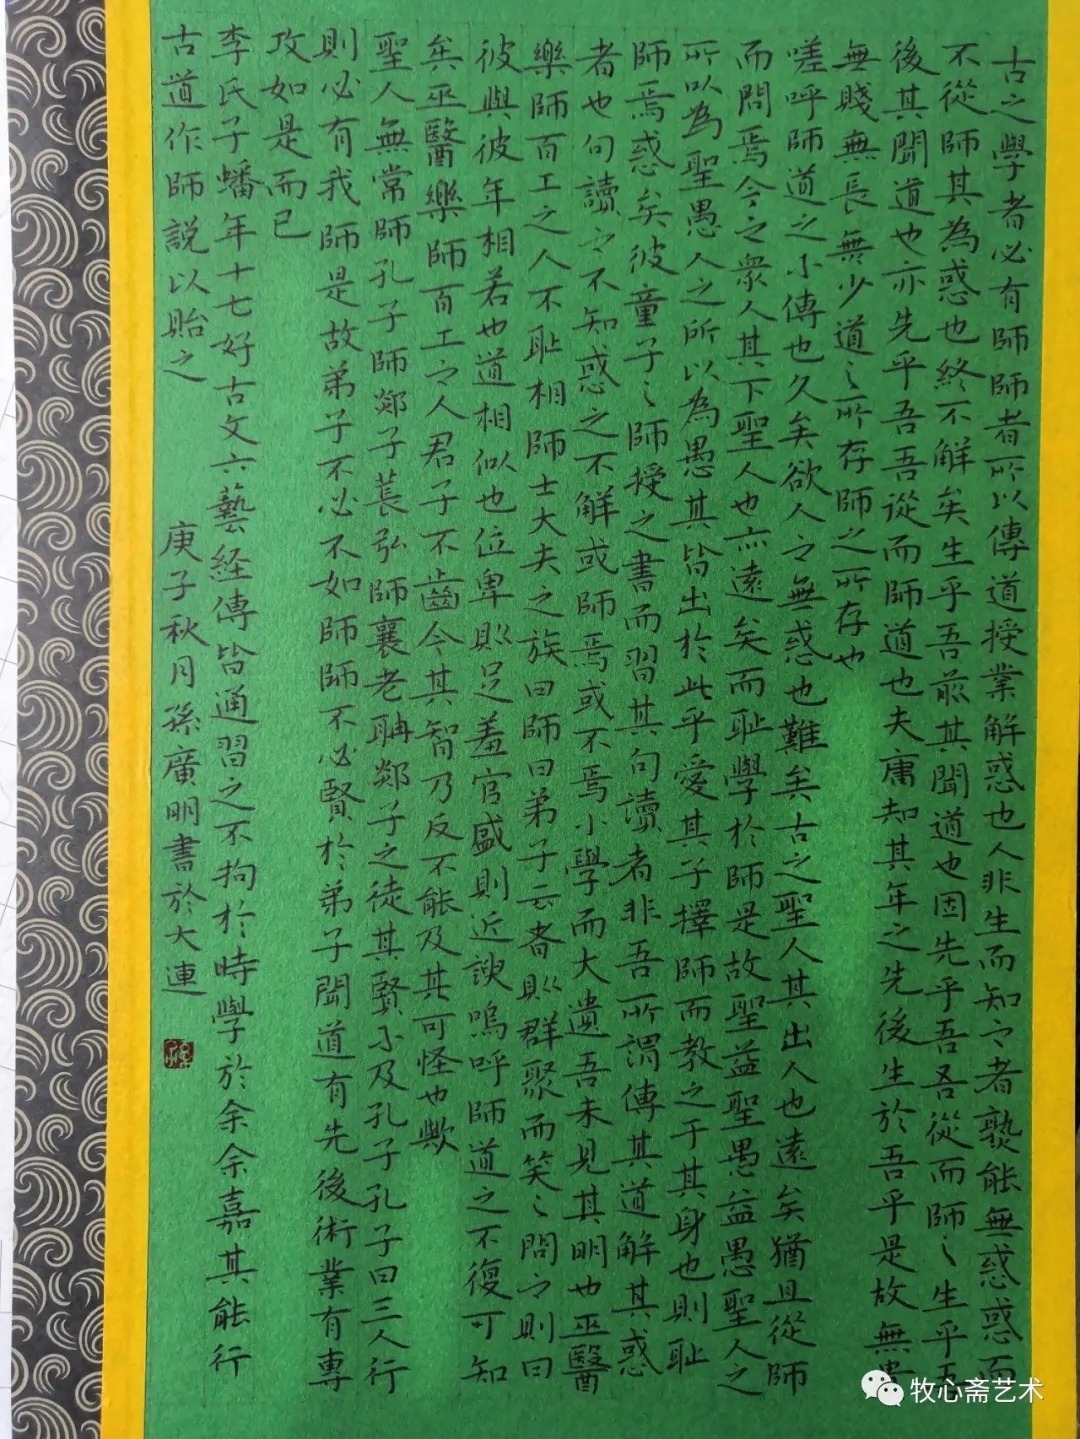 古之學者必有師師者所以傳道授業解惑也人非生而知之者孰能無惑惑而
不從師其為惑也終不解矣生乎吾前其聞道也固先乎吾吾從而師之生乎吾
後其聞道也亦先乎吾吾從而師道也夫庸知其年之先後生於吾乎是故無貴
無賤無長無少道之所存師之所存也
嗟呼師道之不傳也久矣欲人之無惑也難矣古之聖人其出人也遠矣猶且從師
而問焉今之衆人其下聖人也亦遠矣而耻學於師是故聖益聖愚益愚聖人之
所以為聖愚人之所以為愚其皆出於此乎愛其子擇師而教之于其身也則耻
師焉惑矣彼童子之師授之書而習其句讀者非吾所謂傳其道解其惑
者也句讀之不知惑之不解或師焉或不焉小學而大遺吾未見其明也巫醫
樂師百工之人不耻相師士大夫之族曰師曰弟子云者則群聚而笑之問之則曰
彼與彼年相若也道相似也位卑則足羞官盛則近諛嗚呼師道之不復可知
矣巫醫樂師百工之人君子不齒今其智乃反不能及其可怪也歟
聖人無常師孔子師郯子萇弘師襄老聃郯子之徒其賢不及孔子孔子曰三人行
則必有我師是故弟子不必不如師師不必賢於弟子聞道有先後術業有專
攻如是而已
李氏子蟠年十七好古文六藝經傳皆通習之不拘於時學於余余嘉其能行
古道作師説以貽之
庚子秋月孫廣明書於大連
孫
牧心斋艺术